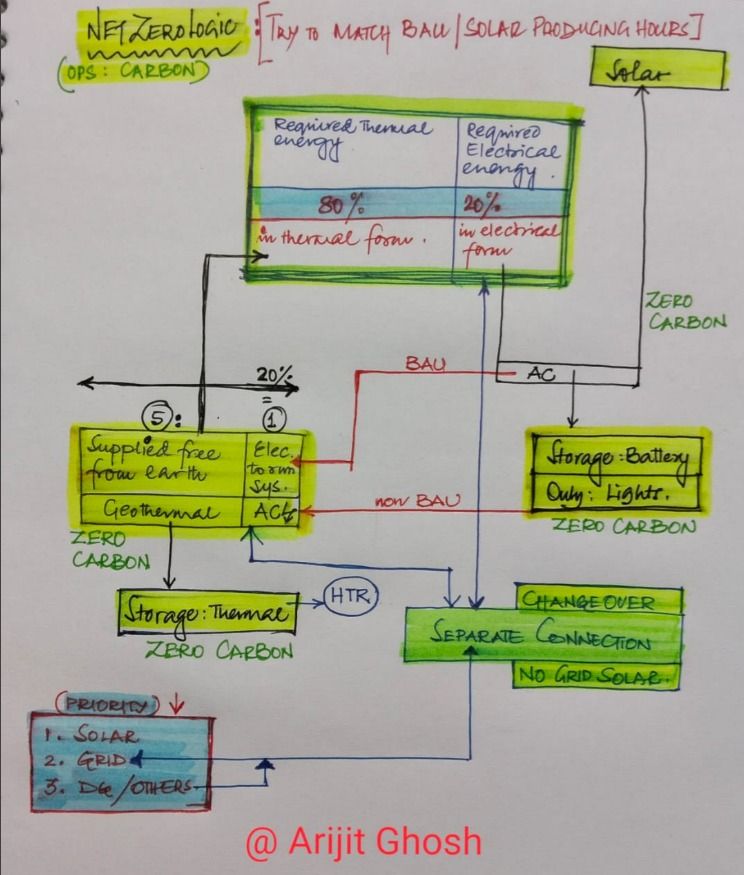 NET ZERO LOGIC : [TRY TO MATCH BAU / SOLAR PRODUCING HOURS]
(OPS : CARBON)
Solar
Required Thermal
energy
Required
Electrical
energy.
80%
20%
in thermal form.
in electrical
form
ZERO
CARBON
BAU
AC
20%
=
5 :
1
Supplied free
from earth
Elec.
to run
sys.
Geothermal
ACs
Storage : Battery
Only : Lights.
non BAU
ZERO CARBON
ZERO
CARBON
Storage : Thermal
HTR
ZERO CARBON
CHANGEOVER
SEPARATE CONNECTION
NO GRID SOLAR.
(PRIORITY) ↓
1. SOLAR
2. GRID
3. DG / OTHERS
@ Arijit Ghosh